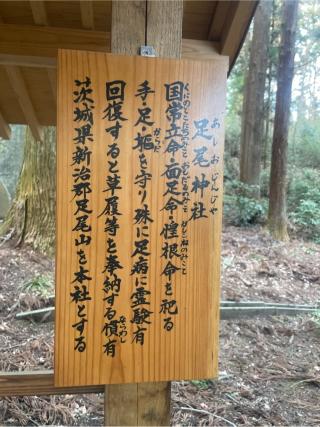 あしおじんじゃ
足尾神社
くにのとこたちのみこと おもだるのみこと かしこねのみこと
国常立命・面足命・惶根命を祀る
からだ
手・足・躯を守り殊に足病に霊験有
回復すると草履等を奉納する慣有
ならわし
茨城県新治郡足尾山を本社とする